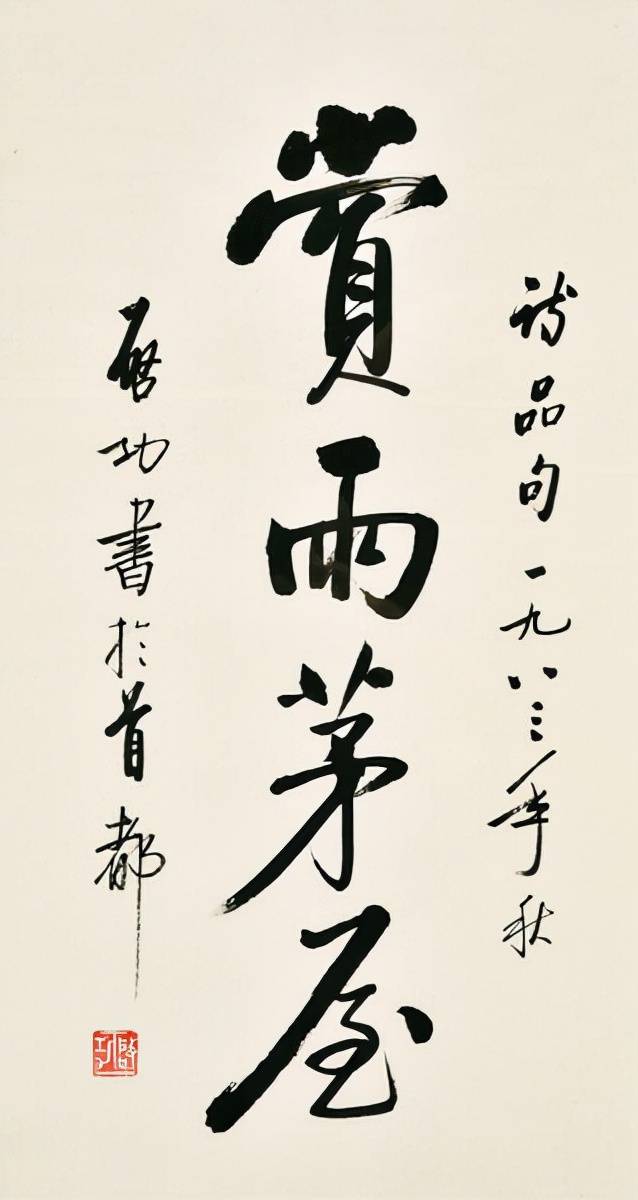 诗品句一九八三年秋
賞雨茅屋
啓功書於首都
啓功